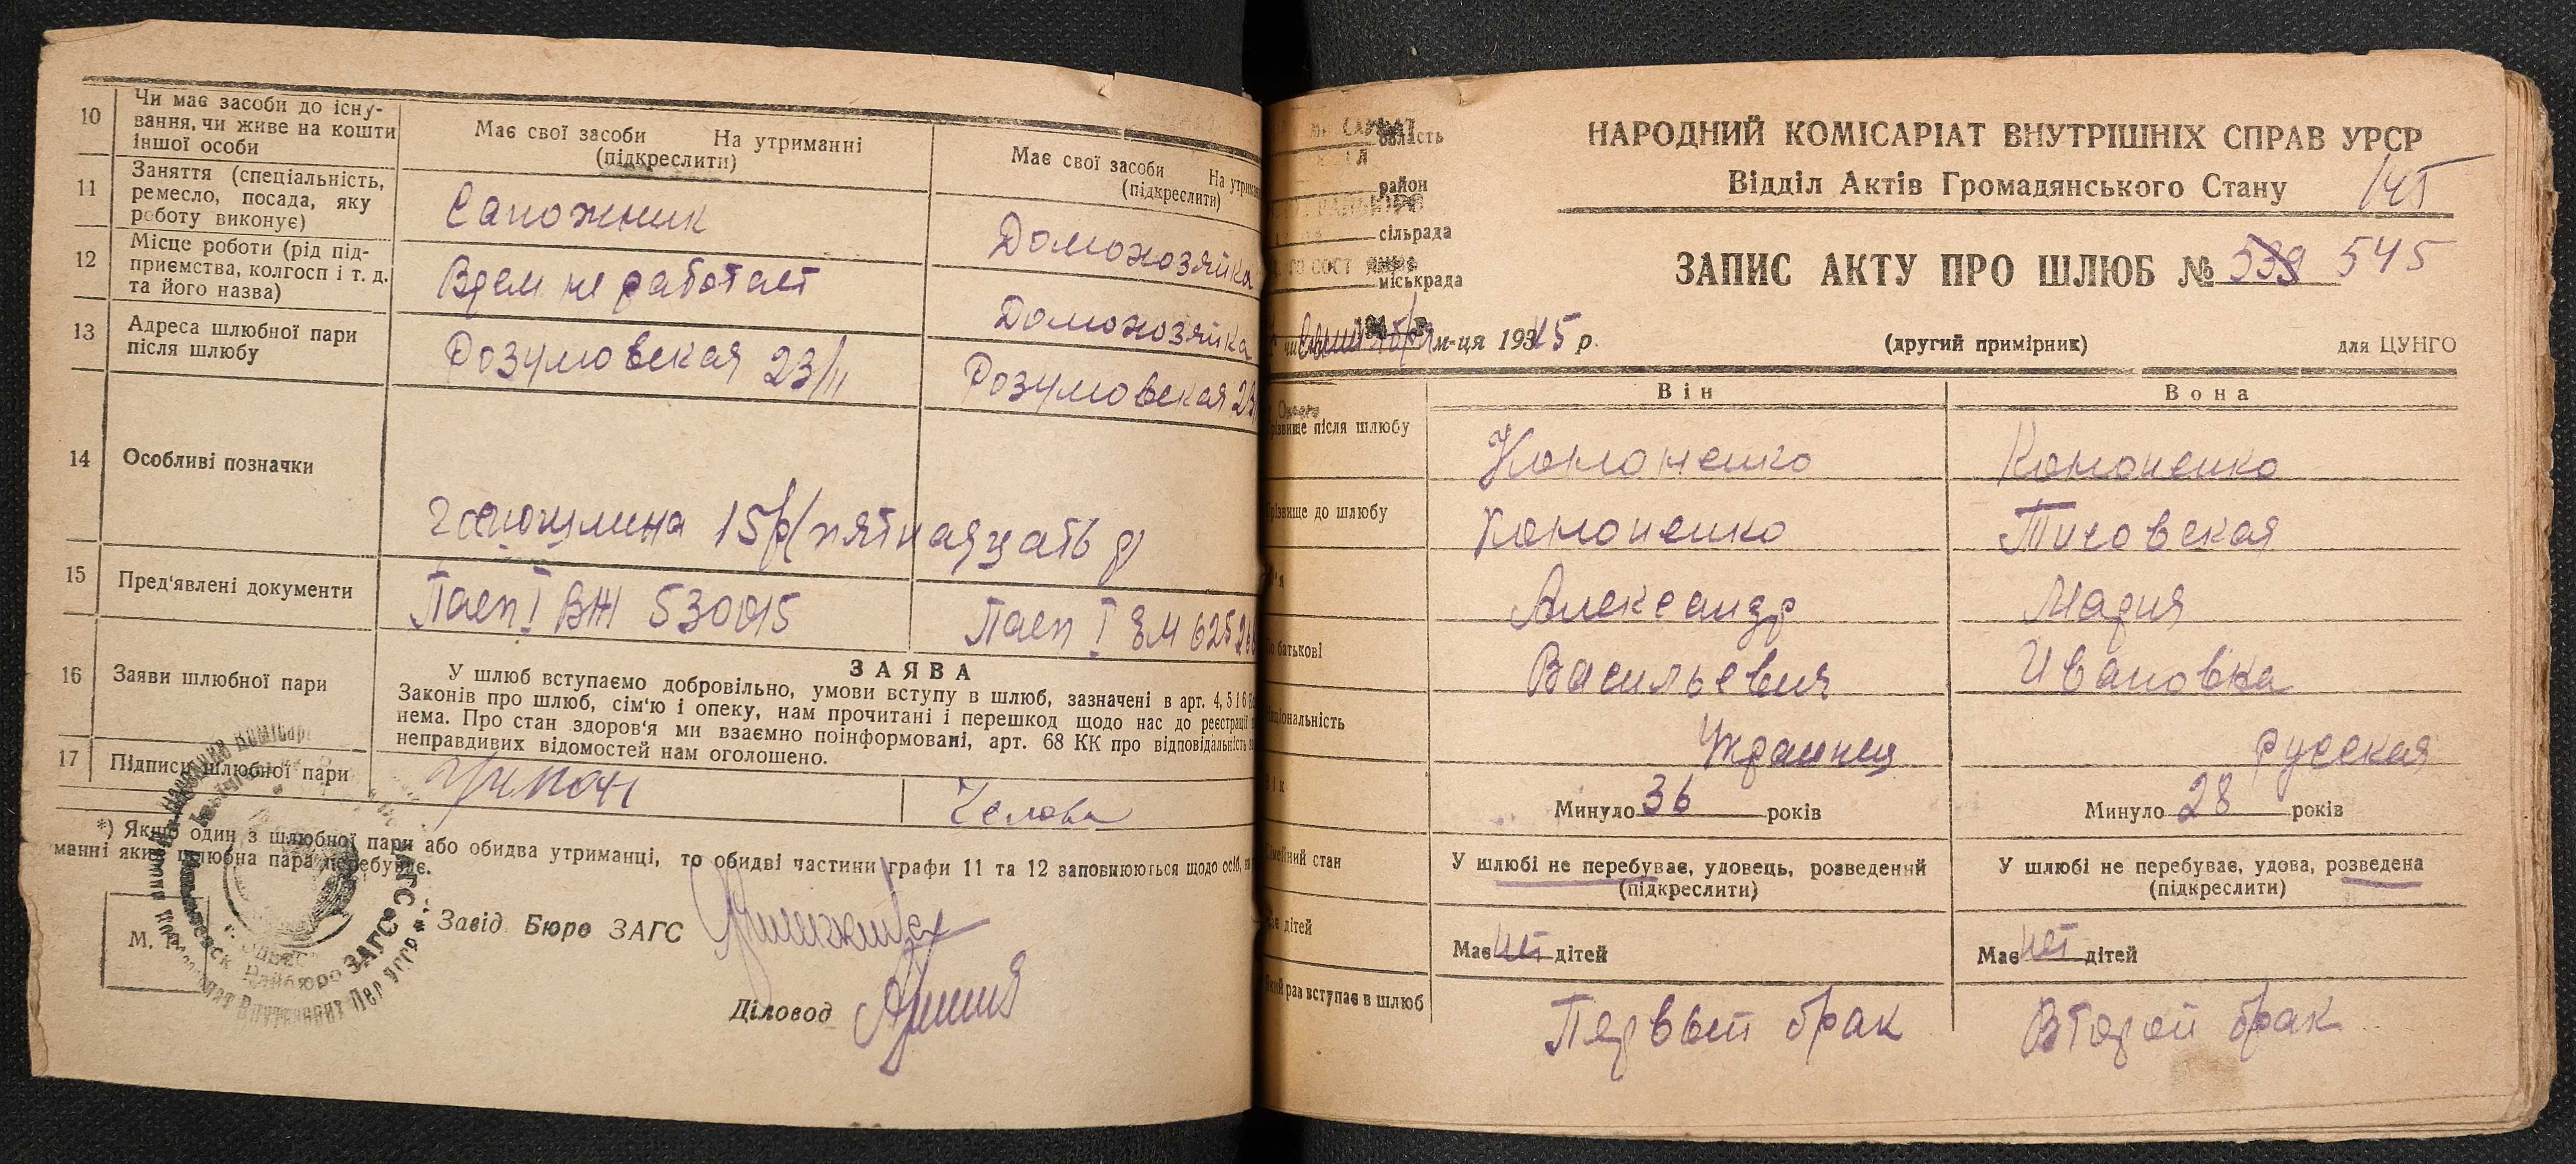 10
Чи має засоби до існу-
вання, чи живе на кошти
іншої особи
Має свої засоби На утриманні
(підкреслити)
Має свої засоби
(підкреслити)
11
Заняття (спеціальність,
ремесло, посада, яку
роботу виконує)
Сапожник
Домохозяйка
12
Місце роботи (рід під-
приємства, колгосп і т. д.
та його назва)
не работает
Домохозяйка
13
Адреса шлюбної пари
після шлюбу
Розумовская 23/11
Розумовская
14
Особливі позначки
15 р (пятнадцать р)
15
Пред'явлені документи
Пасп I ВЖ
Пасп I
16
Заяви шлюбної пари
ЗАЯВА
У шлюб вступаємо добровільно, умови вступу в шлюб, зазначені в арт. 4, 5 і 6
Законів про шлюб, сім'ю і опеку, нам прочитані і перешкод щодо нас до реєстрації
нема. Про стан здоров'я ми взаємно поінформовані, арт. 68 КК про відповідальність
неправдивих відомостей нам оголошено.
17
Підписи шлюбної пари
*) Якщо один з шлюбної пари або обидва утриманці, то обидві частини графи 11 та 12 заповнюються щодо осіб,
шлюбна пара перебуває.
М. П.
Завід. Бюро ЗАГС
Діловод
НАРОДНИЙ КОМІСАРІАТ ВНУТРІШНІХ СПРАВ УРСР
Відділ Актів Громадянського Стану
145
ЗАПИС АКТУ ПРО ШЛЮБ № 539 545
область
район
сільрада
міськрада
м-ця 19345 р.
(другий примірник)
для ЦУНГО
Він
Вона
після шлюбу
Кононенко
Кононенко
до шлюбу
Кононенко
Александр
Мария
батькові
Васильевич
Ивановна
Украинец
русская
Минуло 36 років
Минуло 28 років
стан
У шлюбі не перебуває, удовець, розведений
(підкреслити)
У шлюбі не перебуває, удова, розведена
(підкреслити)
дітей
Має нет дітей
Має нет дітей
раз вступає в шлюб
Первый брак
Второй брак